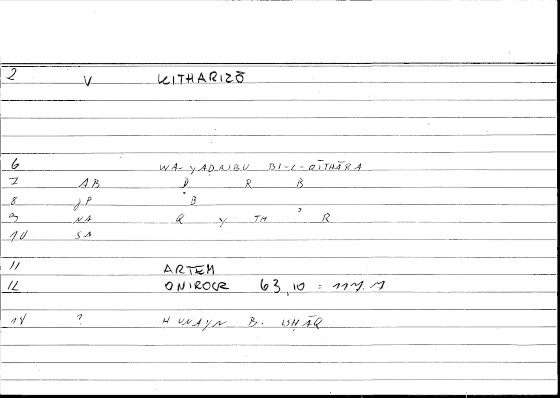 2 V KITHARIZŌ
6 WA-YAḌRIBU BI-L-QĪTHĀRA
7 AB Ḍ R B
8 JP B
9 NA Q Y TH ʾ R
10 SA
11 ARTEM
12 ONIROCR 63,10 = 117.7
14 ? HUNAYN B. ISḤĀQ